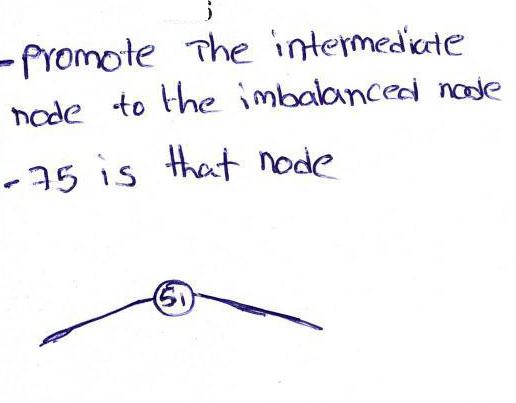 ;
- Promote The intermediate
node to the imbalanced node
- 75 is that node
51